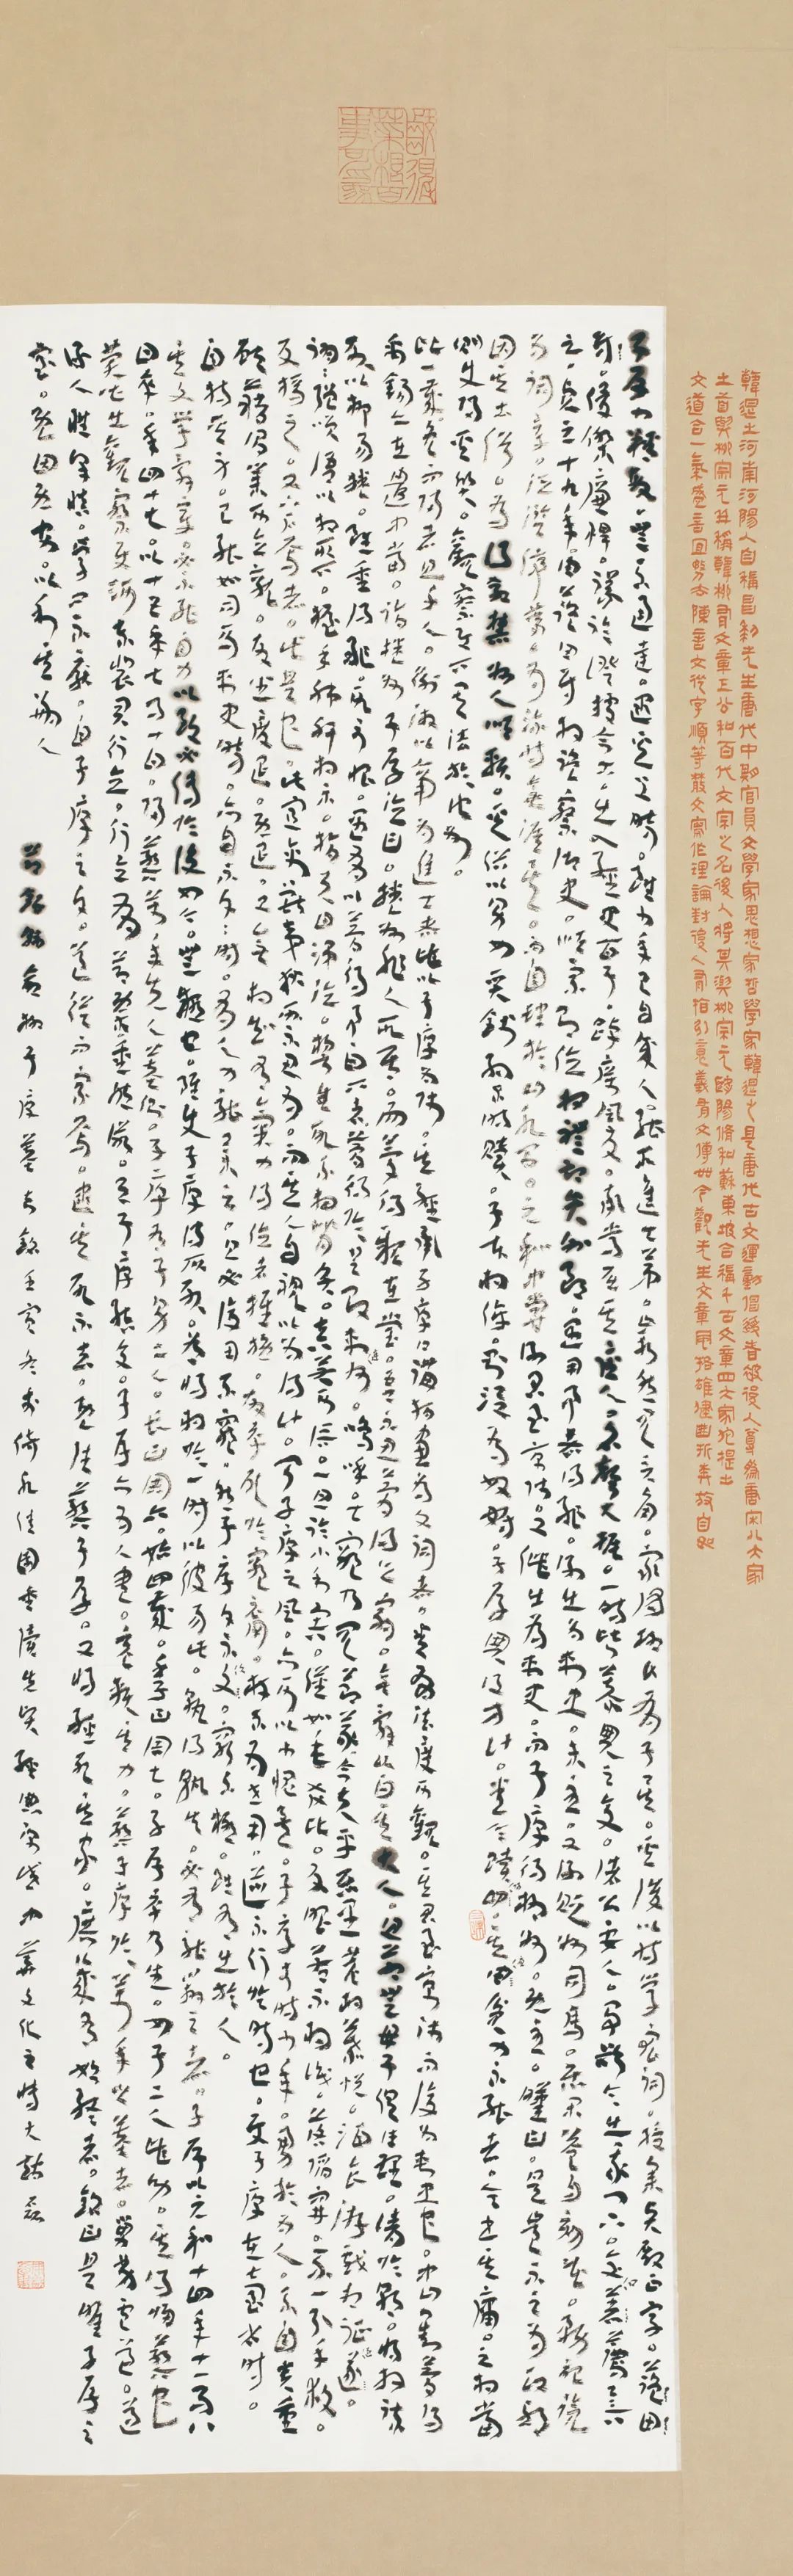 韓退之河南河陽人自稱昌黎先生唐代中期官員文學家思想家哲學家韓退之是唐代古文運動倡導者被後人尊為唐宋八大家
之首與柳宗元並稱韓柳有文章巨公和百代文宗之名後人將其與柳宗元歐陽脩和蘇東坡合稱千古文章四大家他提出
文道合一氣盛言宜務去陳言文從字順等散文寫作理論對後人有指引意義有文傳世今觀先生文章風格雄健曲折奔放自如
子厚少精敏。無不通達。逮其父時。雖少年已自成人。能取進士第。嶄然見頭角。眾謂柳氏有子矣。其後以博學宏詞。授集賢殿正字。藍田
尉。俊傑廉悍。議論證據今古。出入經史百子。踔厲風發。率常屈其座人。名聲大振。一時皆慕與之交。諸公要人。爭欲令出我門下。交口薦譽
之。貞元十九年。由藍田尉拜監察御史。順宗即位。拜禮部員外郎。遇用事者得罪。例出為刺史。未至。又例貶州司馬。居閒益自刻苦。務記覽
為詞章。汎濫停蓄。為深博無涯涘。而自肆於山水間。元和中嘗例召至京師。又偕出為刺史。而子厚得柳州。既至。歎曰。是豈不足為政邪
因其土俗。為設教禁。州人順賴。其俗以男女質錢。約不時贖。子本相侔。則沒為奴婢。子厚與設方計。悉令贖歸。其尤貧力不能者。令書其傭。足相當
則使歸其質。觀察使下其法於他州。
比一歲。免而歸者且千人。衡湘以南為進士者。皆以子厚為師。其經承子厚口講指畫為文詞者。悉有法度可觀。其召至京師而復為刺史也。中山劉夢得
禹錫亦在遣中。當詣播州。子厚泣曰。播州非人所居。而夢得親在堂。吾不忍夢得之窮。無辭以白其大人。且萬無母子俱往理。請於朝。將拜疏
願以柳易播。雖重得罪。死不恨。遇有以夢得事白上者。夢得於是改刺連州。嗚呼。士窮乃見節義。今夫平居里巷相慕悅。酒食游戲相徵逐。
詡詡強笑語以相取下。握手出肺肝相示。指天日涕泣。誓生死不相背負。真若可信。一旦臨小利害。僅如毛髮比。反眼若不相識。落陷穽。不一引手救。
反擠之。又下石焉者。皆是也。此宜禽獸夷狄所不忍為。而其人自視以為得計。聞子厚之風。亦可以少愧矣。子厚前時少年。勇於為人。不自貴重
顧藉。謂功業可立就。故坐廢退。既退。又無相知有氣力得位者推挽。故卒死於窮裔。材不為世用。道不行於時也。使子厚在臺省時。
自持其身。已能如司馬刺史時。亦自不斥。斥時。有人力能舉之。且必復用不窮。然子厚斥不久。窮不極。雖有出於人。
其文學辭章。必不能自力以致必傳於後如今。無疑也。雖使子厚得所願。為將相於一時。以彼易此。孰得孰失。必有能辨之者。子厚以元和十四年十一月八
日卒。年四十七。以十五年七月十日。歸葬萬年先人墓側。子厚有子男二人。長曰周六。始四歲。季曰周七。子厚卒乃生。女子二人皆幼。其得歸葬也
費皆出觀察使河東裴君行立。行立有節概。重然諾。與子厚結交。子厚亦為之盡。竟賴其力。葬子厚於萬年之墓者。舅弟盧遵。遵
涿人。性謹慎。學問不厭。自子厚之斥。遵從而家焉。逮其死不去。既往葬子厚。又將經紀其家。庶幾有始終者。銘曰。是惟子厚之
室。既固既安。以利其嗣人
節錄韓愈柳子厚墓志銘壬寅冬於倚水佳園重讀先賢經典實感中華文化之博大